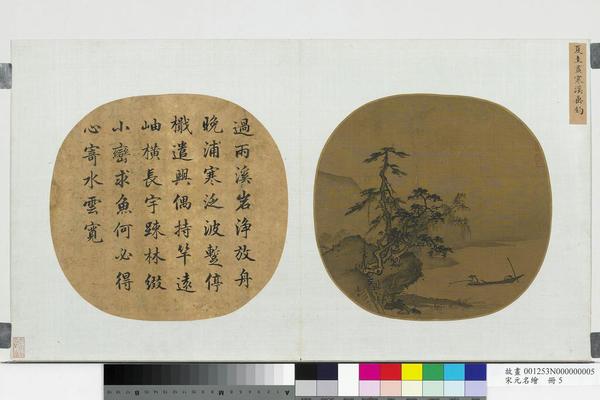 夏圭畫寒溪垂釣
過雨溪岩淨放舟
晚浦寒泛波蹔停
檝遣興偶持竿遠
岫橫長宇踈林綴
小巒求魚何必得
心寄水雲寬
故畫 001253N000000005
宋元名繪 冊 5